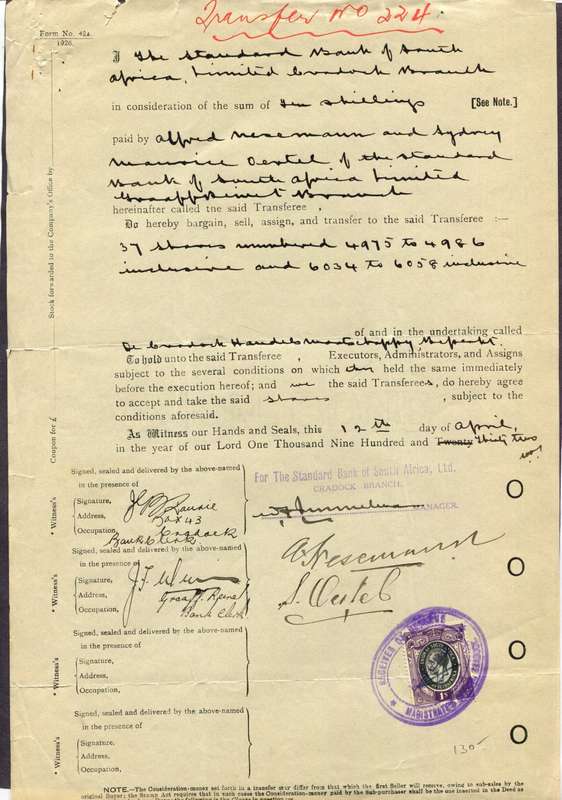 Transfer No 224.
Form No. 42A.
1926.
I The Standard Bank of South
Africa, Limited Cradock Branch
in consideration of the sum of Ten shillings [See Note.]
paid by Alfred Nesemann and Sydney
Maurice Oertel of the Standard
Bank of South Africa Limited
Graaff Reinet Branch
hereinafter called the said Transferee ,
Do hereby bargain, sell, assign, and transfer to the said Transferee :—
37 shares numbered 4975 to 4986
inclusive and 6034 to 6058 inclusive
of and in the undertaking called
De Cradock Handels Maatschappij Beperkt.
To hold unto the said Transferee , Executors, Administrators, and Assigns
subject to the several conditions on which held the same immediately
before the execution hereof; and we the said Transferees, do hereby agree
to accept and take the said shares , subject to the
conditions aforesaid.
As Witness our Hands and Seals, this 12th day of April,
in the year of our Lord One Thousand Nine Hundred and Twenty Thirty two
Signed, sealed and delivered by the above-named
in the presence of
Signature,
Address, Box 43
Cradock
Occupation, Bank Clerk
For The Standard Bank of South Africa, Ltd.
CRADOCK BRANCH.
MANAGER.
Signed, sealed and delivered by the above-named
in the presence of
Signature,
Address, Graaff Reinet
Occupation, Bank Clerk
A Nesemann
S. Oertel
Signed, sealed and delivered by the above-named
in the presence of
Signature,
Address,
Occupation,
Signed, sealed and delivered by the above-named
in the presence of
Signature,
Address,
Occupation,
* Witness's
* Witness's
* Witness's
* Witness's
Coupon for £
Stock forwarded to the Company's Office by
MAGISTRATE
130-
NOTE.—The Consideration-money set forth in a transfer may differ from that which the first Seller will receive, owing to sub-sales by the
original Buyer; the Stamp Act requires that in such cases the Consideration-money paid by the Sub-purchaser shall be the one inserted in the Deed as